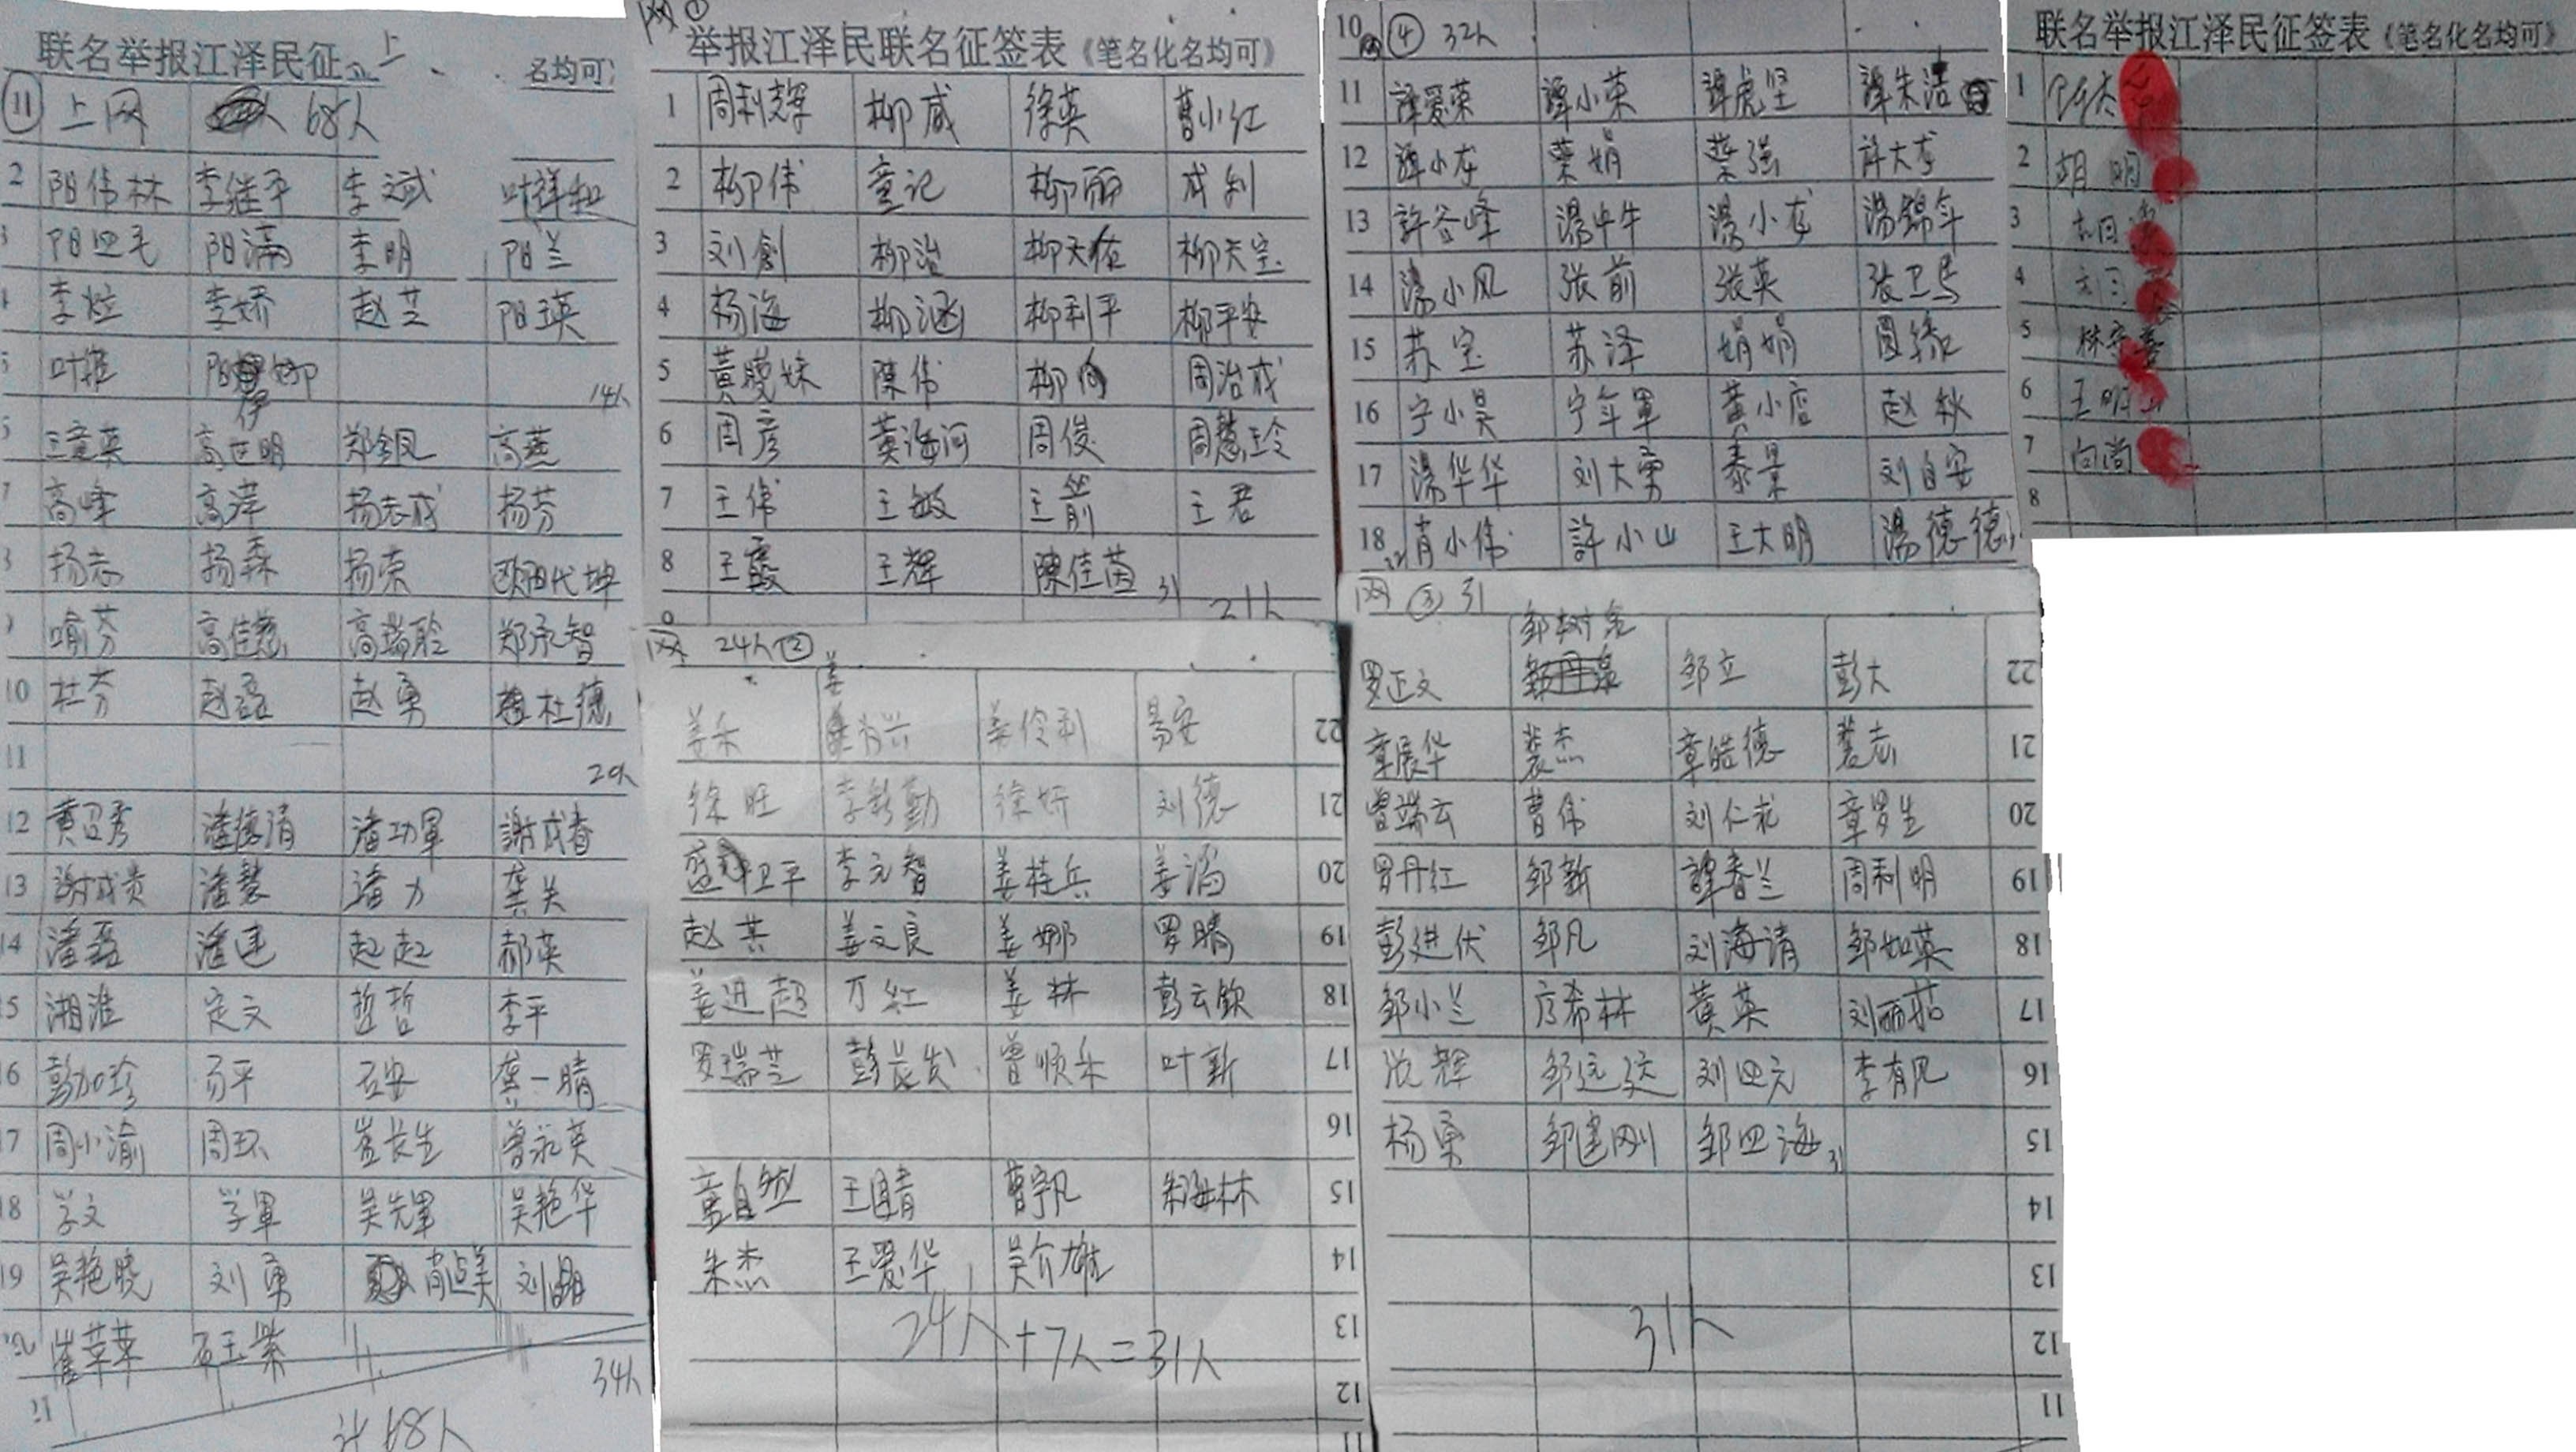 联名举报江泽民征
名均可
11 上网 68人
2 阳伟林 李继平 李斌 叶祥和
阳四毛 阳满 李明 阳兰
李娇 赵芝 阳瑛
14人
高世明 郑金凤 高燕
7 高峰 高萍 扬志成 扬芬
扬志 扬森 扬荣 欧阳代坤
喻芬 高佳慧 高瑞聆 郑承智
10 杜芬 赵磊 赵勇 杜德
11
20人
12 黄召秀 潘德清 潘功軍 謝成春
13 謝成贵 潘慧 潘力 龚关
14 潘磊 潘建 赵赵 郝英
5 湘淮 定文 哲哲 李平
6 彭加珍 易平 石安 龚一晴
7 周小渝 周环 崔长生 曾永英
8 学文 学軍 吴先軍 吴艳华
19 吴艳晓 刘勇 肖占美 刘晶
崔苹苹 石玉紫
34人
计68人
网 ①
举报江泽民联名征签表《笔名化名均可》
1 周利辉 柳威 徐英 曹小红
2 柳伟 童记 柳丽 成利
3 刘創 柳治 柳天佑 柳天宝
4 杨海 柳涵 柳利平 柳平安
5 黄曉妹 陳伟 周治成
6 周彦 黄海河 周俊 周慧玲
7 王伟 王敏 王前 王君
8 王霞 王辉 陳佳茵 31
31人
网 24人 ②
姜禾 姜伶利 易安 22
徐旺 李新勤 徐妍 刘德 21
盛卫平 李元智 姜桂兵 姜滔 20
赵其 姜文良 姜娜 罗晴 19
姜进超 万红 姜林 彭云钦 18
罗瑞芝 彭长发 曾顺禾 叶新 17
16
童自然 王晴 曹宇凡 朱海林 15
朱杰 王爱华 吴介雄 14
24人+7人=31人
13
12
11
10 ④ 32人
11 譚爱荣 譚小荣 譚虎坚 譚朱洁
12 譚小龙 荣娟 荣强 許大龙
13 許谷峰 湯牛牛 湯小龙 湯錦年
14 湯小凤 张前 张英 张卫兵
15 苏宝 苏泽 娟娟 圆缘
16 宁小昊 宁年軍 黄小店 赵秋
17 湯华华 刘大勇 秦景 刘自安
18 肖小伟 許小山 王大明 湯德德
网 ③ 31
邹树泉
罗正文 邹立 彭大 22
章展华 裴杰 章皓德 裴志 21
曾端云 曹伟 刘仁求 章罗生 20
罗丹红 邹新 譚春兰 周利明 19
彭进伏 邹凡 刘海清 邹如英 18
邹小兰 彦希林 黄英 刘丽茹 17
邹远达 刘四元 李有凡 16
杨勇 邹建刚 邹四海 31 15
14
13
31人 12
11
联名举报江泽民征签表《笔名化名均可》
1
2 胡明
3
4
5
6 王明
7 向尚
8